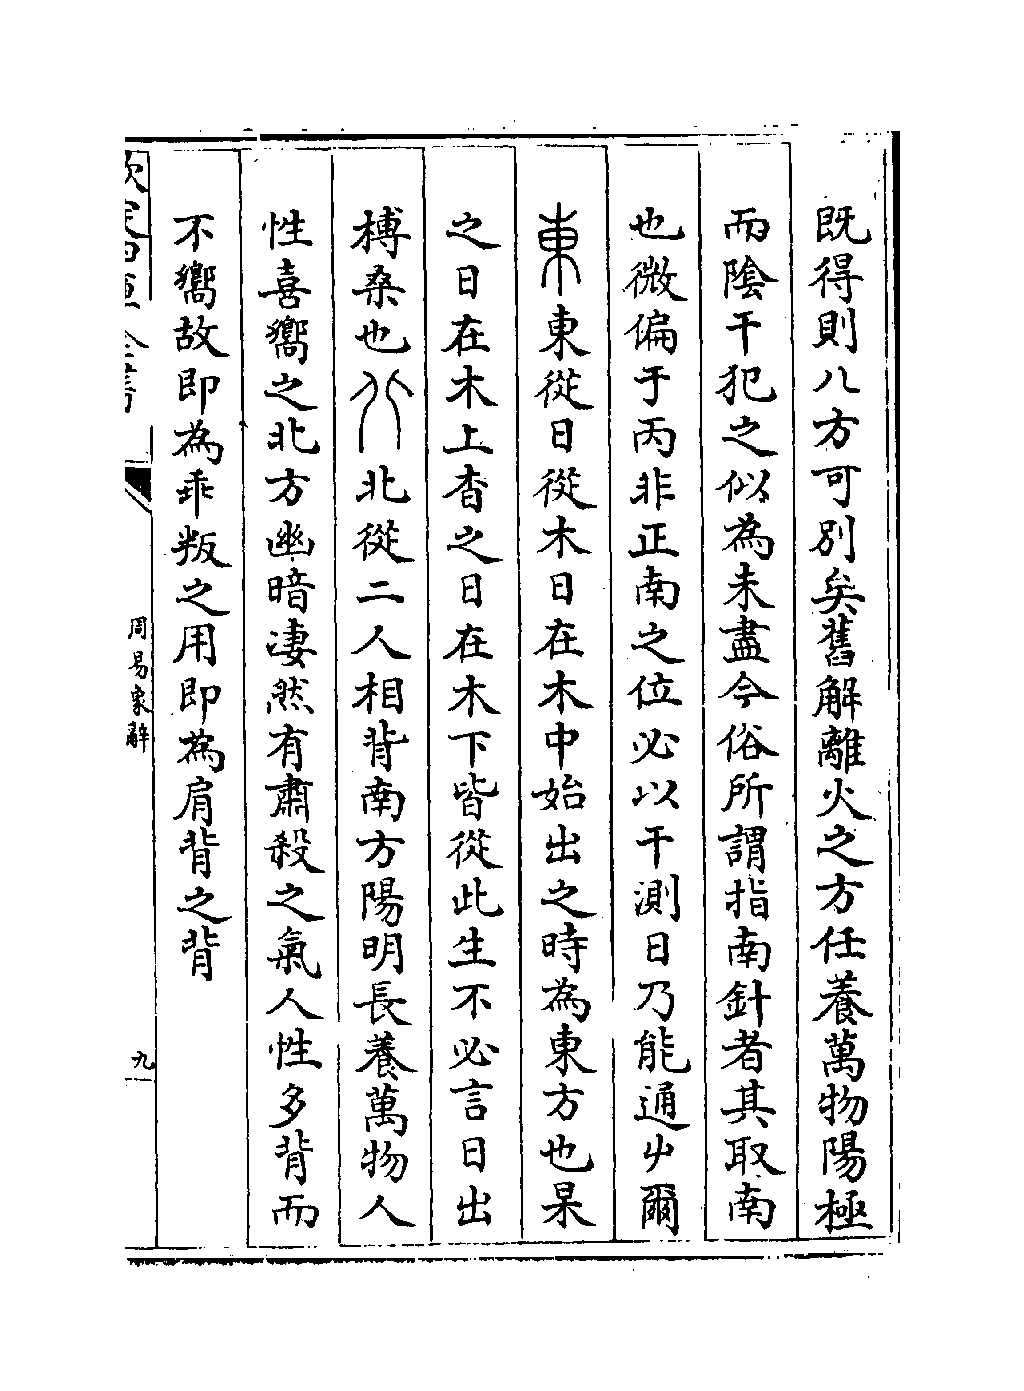 既得則八方可別矣舊解離火之方任養萬物陽極
而陰干犯之似為未盡今俗所謂指南針者其取南
也微偏于丙非正南之位必以干測日乃能通屮爾
東東從日從木日在木中始出之時為東方也杲
之日在木上杳之日在木下皆從此生不必言日出
榑桑也北北從二人相背南方陽明長養萬物人
性喜嚮之北方幽暗凄然有肅殺之氣人性多背而
不嚮故即為乖叛之用即為肩背之背
欽定四庫全書
周易象辭
九